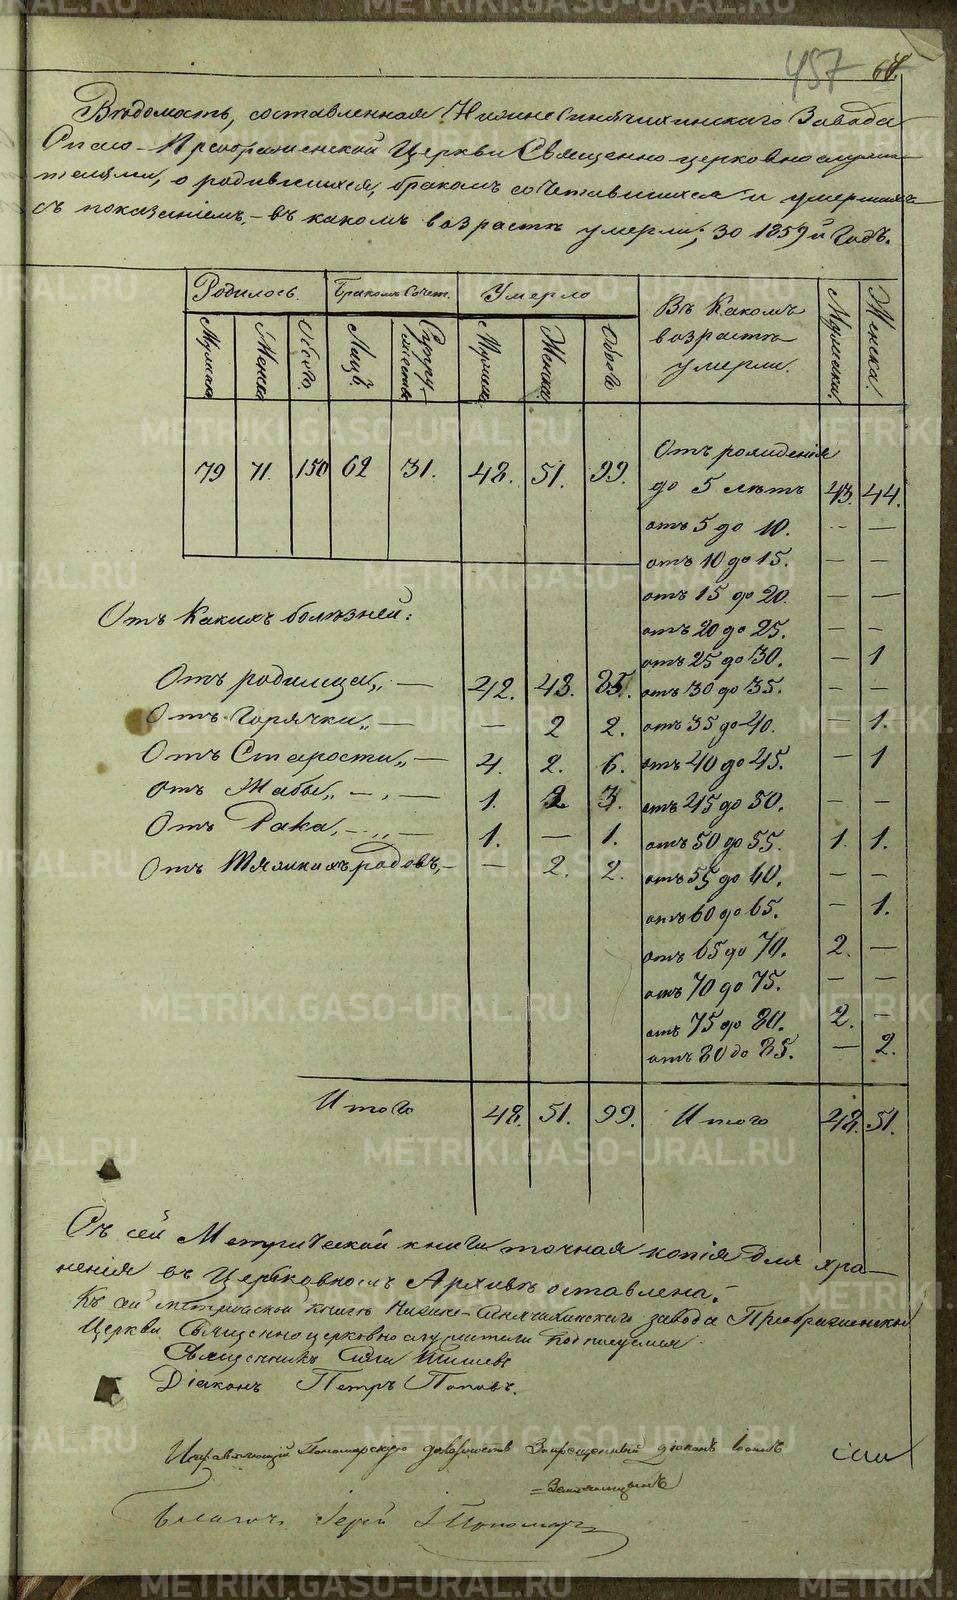 457
Вѣдомость, составленная Нижнесинячихинскаго Завода
Спасо-Преображенской Церкви Священно-церковнослужи-
телями, о родившихся, бракомъ сочетавшихся и умершихъ
съ показаніемъ, - въ какомъ возрастѣ умерли; за 1859й годъ.
Родилось. Бракомъ сочет. Умерло Въ какомъ возрастѣ умерли. Мужеска. Женска.
Мужеска Женска Обоего. Лицъ. Супружествъ Мужеска Женска Обоего
79 71. 150 62 31. 48. 51. 99. Отъ рожденія
до 5 лѣтъ 43. 44.
отъ 5 до 10. — —
отъ 10 до 15. — —
отъ 15 до 20. — —
Отъ Какихъ болѣзней:
отъ 20 до 25. — —
отъ 25 до 30. — 1
Отъ родимца „ — 42. 43. 85. отъ 30 до 35. — —
Отъ Горячки „ — — 2 2. отъ 35 до 40. — 1.
Отъ Старости „ — 4. 2. 6. отъ 40 до 45. — 1
Отъ Жабы „ — 1. 2. 3. отъ 45 до 50. — —
Отъ Рака, — „ — 1. — 1. отъ 50 до 55. 1. 1.
Отъ Тяжкихъ родовъ, — — 2. 2. отъ 55 до 60. — —
отъ 60 до 65. — 1.
отъ 65 до 70. 2. —
отъ 70 до 75. — —
отъ 75 до 80. 2. —
отъ 80 до 85. — 2.
Итого 48. 51. 99. Итого 48. 51.
Съ сей Метрической книги точная копія для хра-
ненія въ Церковномъ Архивѣ оставлена.
Къ сей метрической книгѣ Нижне-Синячихинскаго завода Преображенской
Церкви Священноцерковнослужители подписуемся
Священникъ Илія Шишевъ
Діаконъ Петръ Поповъ.
Исправляющій Пономарскую должность Запрещенный діаконъ
Благоч. Іерей І Пономар
METRIKI.GASO-URAL.RU